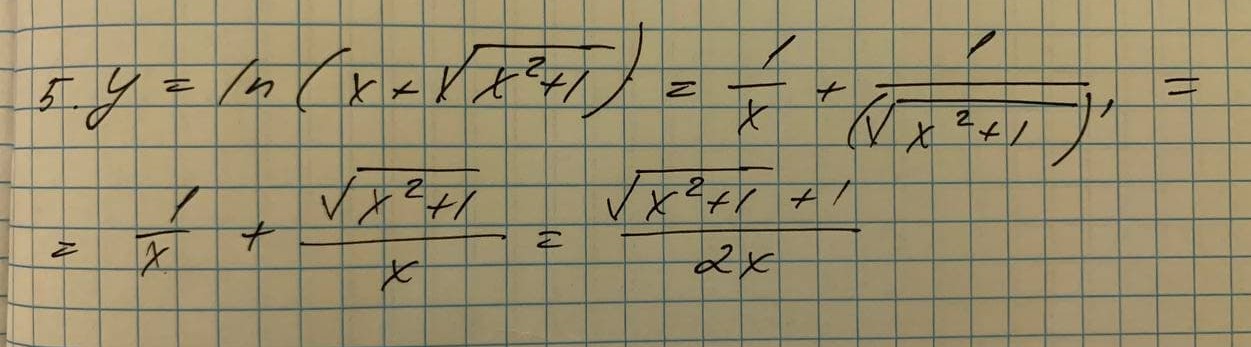 5. y = ln(x + √(x²+1)) = 1/x + 1/(√(x²+1))' =
= 1/x + √(x²+1)/x = (√(x²+1) + 1)/2x